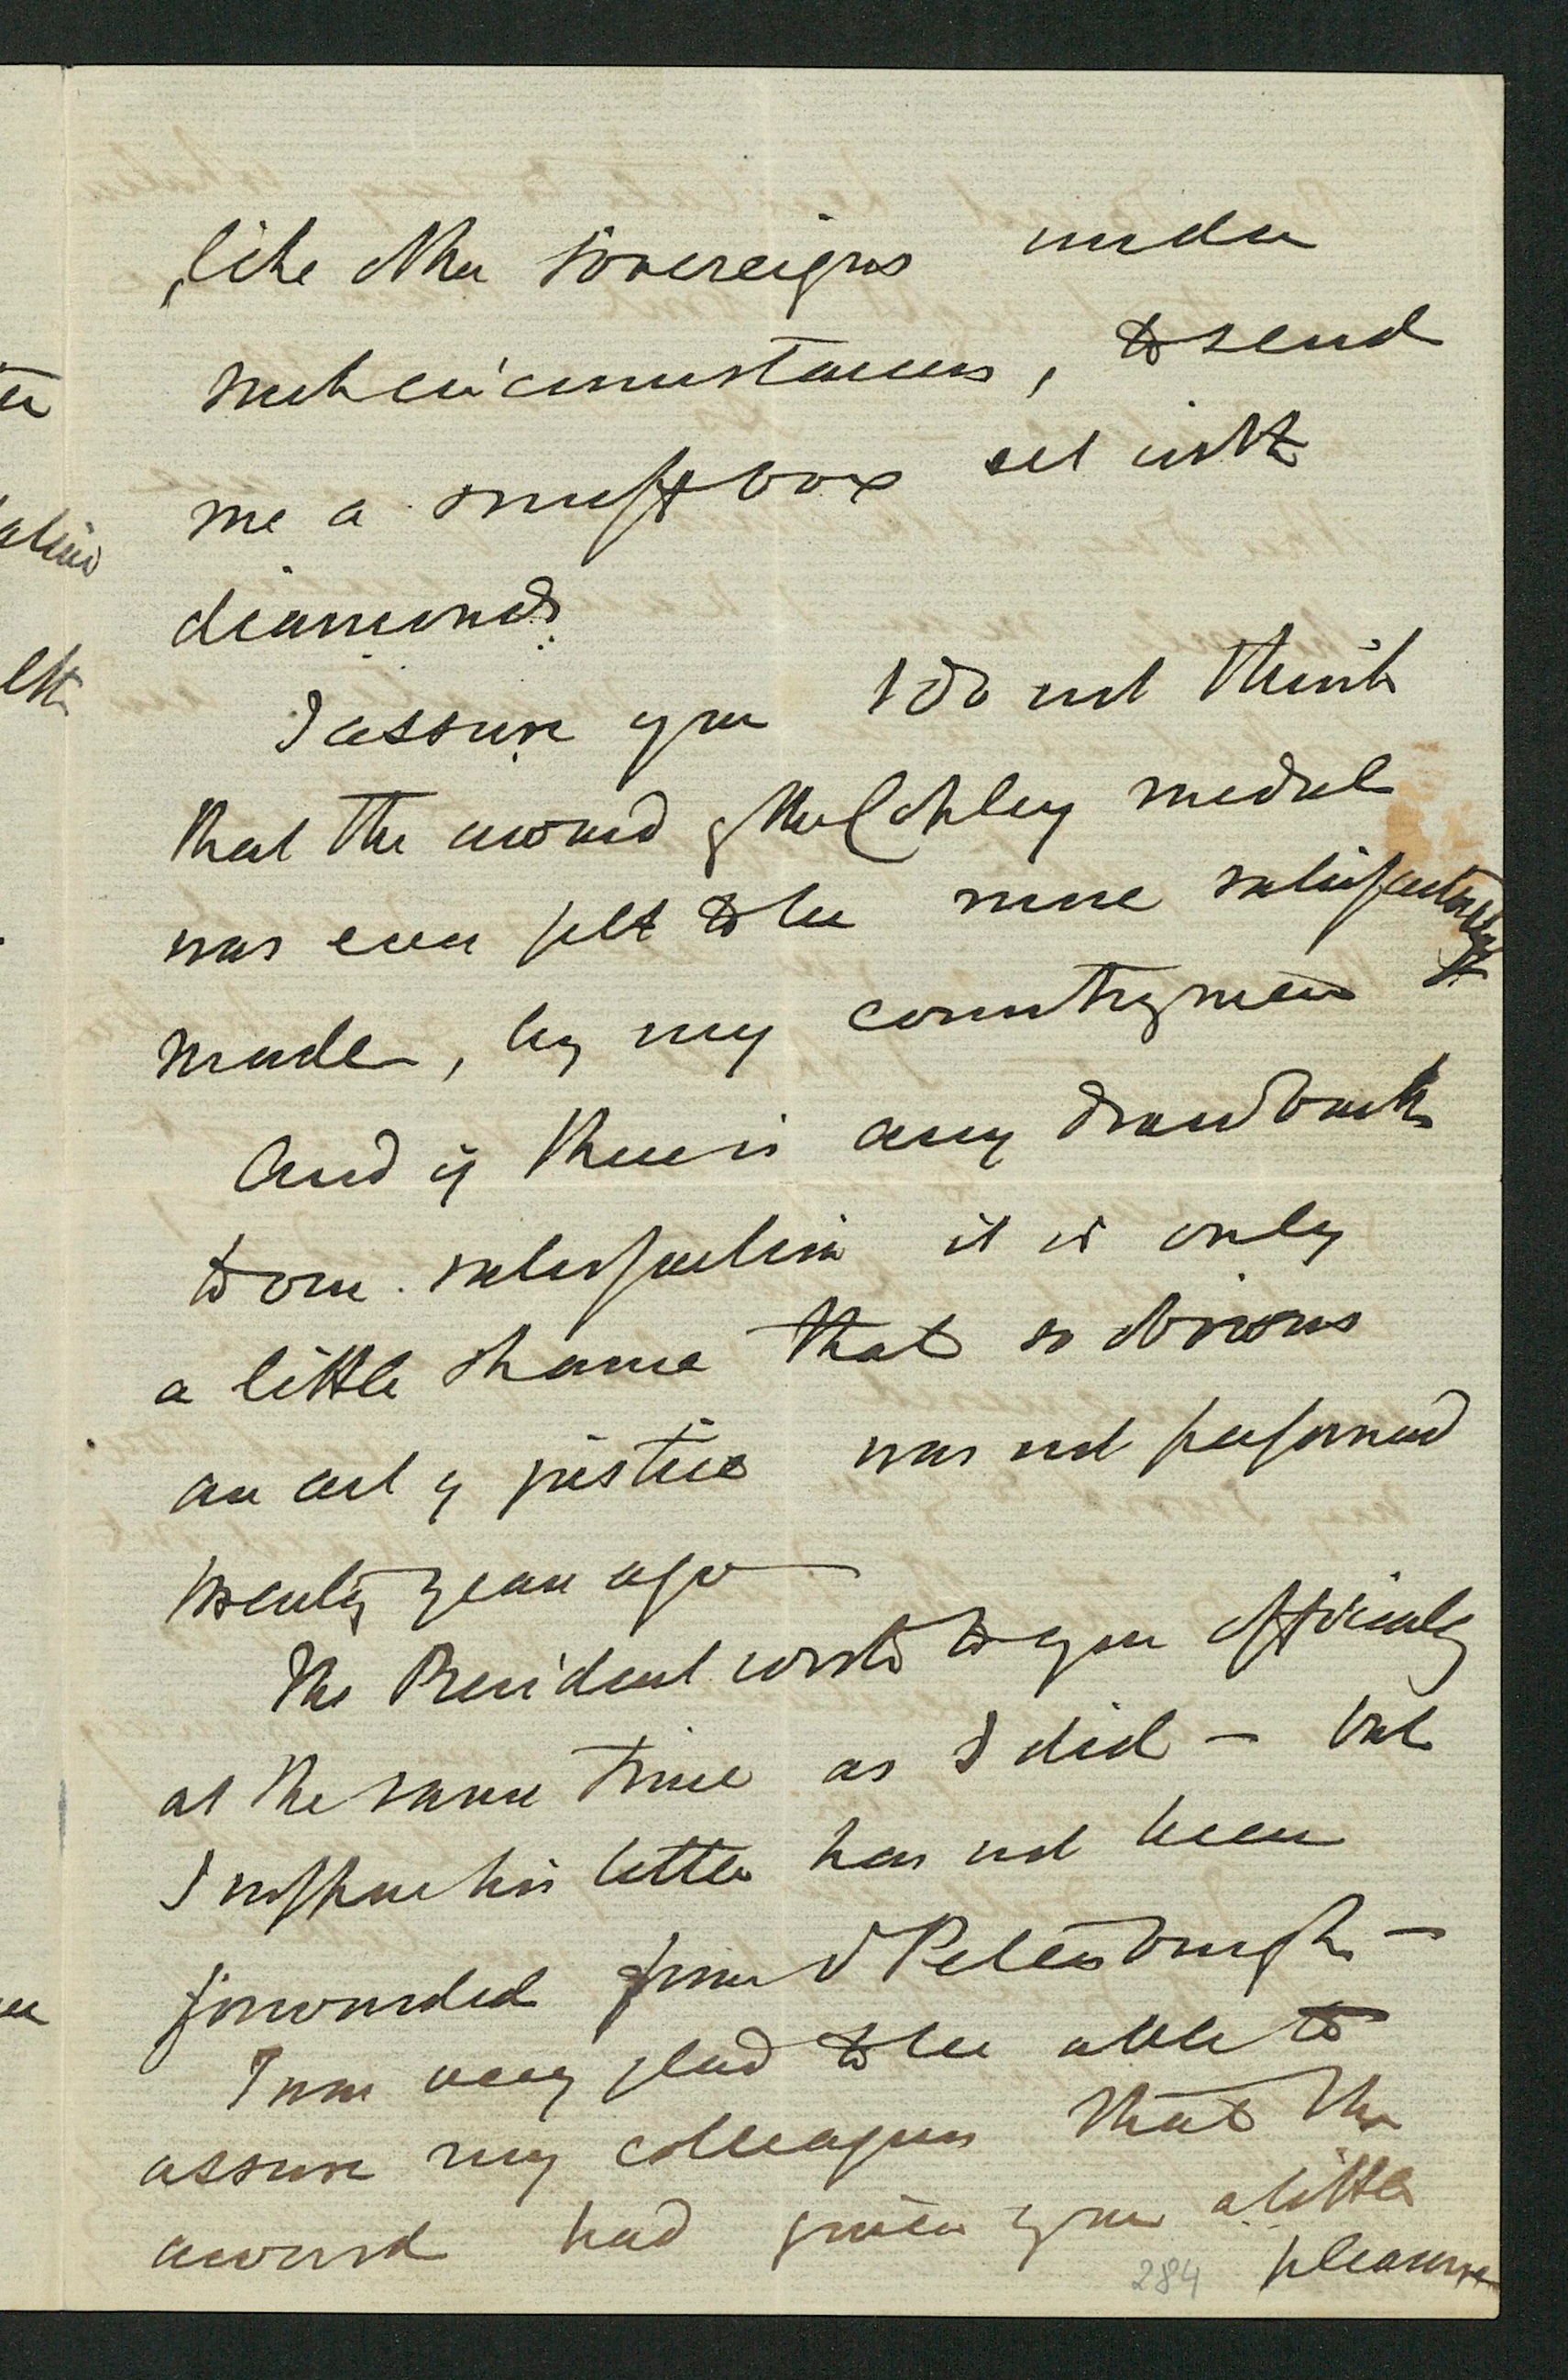 like other sovereigns under
such circumstances, to send
me a snuff box set with
diamonds.
I assure you I do not think
that the award of the Copley medal
was ever felt to be more satisfactorily
made, by my countrymen
And if there is any drawback
to our satisfaction it is only
a little shame that so obvious
an act of justice was not performed
twenty years ago
The President wrote to you officially
at the same time as I did – but
I suppose his letter has not been
forwarded from Petersburgh –
I am very glad to be able to
assure my colleagues that the
award had given you a little
pleasure
284